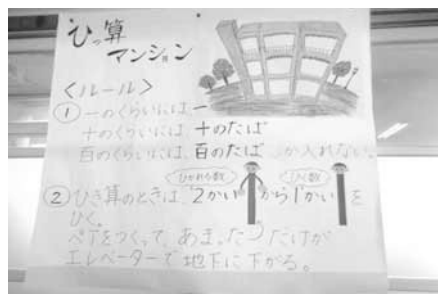 ひっ算
マンション
<ルール>
① 一のくらいには、一
十のくらいには、十のたば
百のくらいには、百のたばしか入れない。
ひかれる数
ひく数
② ひき算のときは、2かいから1かいを
ひく。
ペアをつくって、あまったつだけが
エレベーターで地下に下がる。